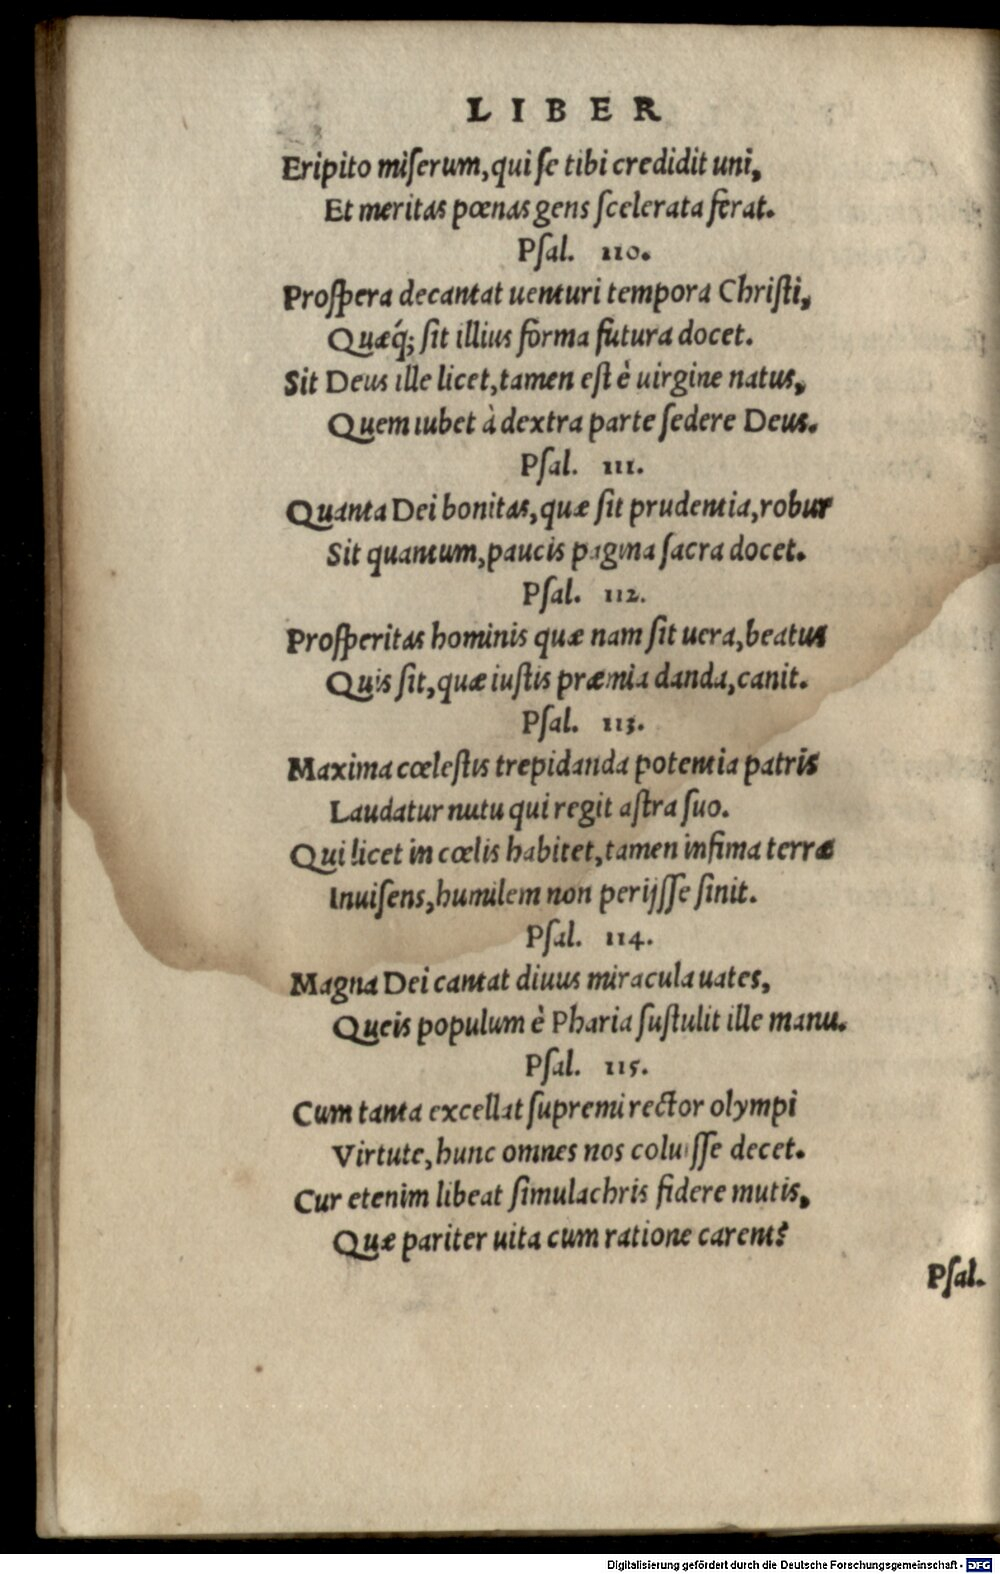 LIBER
Eripito miſerum, qui ſe tibi credidit uni,
Et meritas pœnas gens ſcelerata ferat.
Pſal. 110.
Proſpera decantat uenturi tempora Chriſti,
Quæq́; ſit illius forma futura docet.
Sit Deus ille licet, tamen eſt è uirgine natus,
Quem iubet à dextra parte ſedere Deus.
Pſal. 111.
Quanta Dei bonitas, quæ ſit prudentia, robur
Sit quantum, paucis pagina ſacra docet.
Pſal. 112.
Proſperitas hominis quæ nam ſit uera, beatus
Quis ſit, quæ iuſtis præmia danda, canit.
Pſal. 113.
Maxima cœleſtis trepidanda potentia patris
Laudatur nutu qui regit aſtra ſuo.
Qui licet in cœlis habitet, tamen infima terræ
Inuiſens, humilem non perijſſe ſinit.
Pſal. 114.
Magna Dei cantat diuus miracula uates,
Queis populum è Pharia ſuſtulit ille manu.
Pſal. 115.
Cum tanta excellat ſupremi rector olympi
Virtute, hunc omnes nos coluiſſe decet.
Cur etenim libeat ſimulachris fidere mutis,
Quæ pariter uita cum ratione carent?
Pſal.
Digitalisierung gefördert durch die Deutsche Forschungsgemeinschaft - DFG